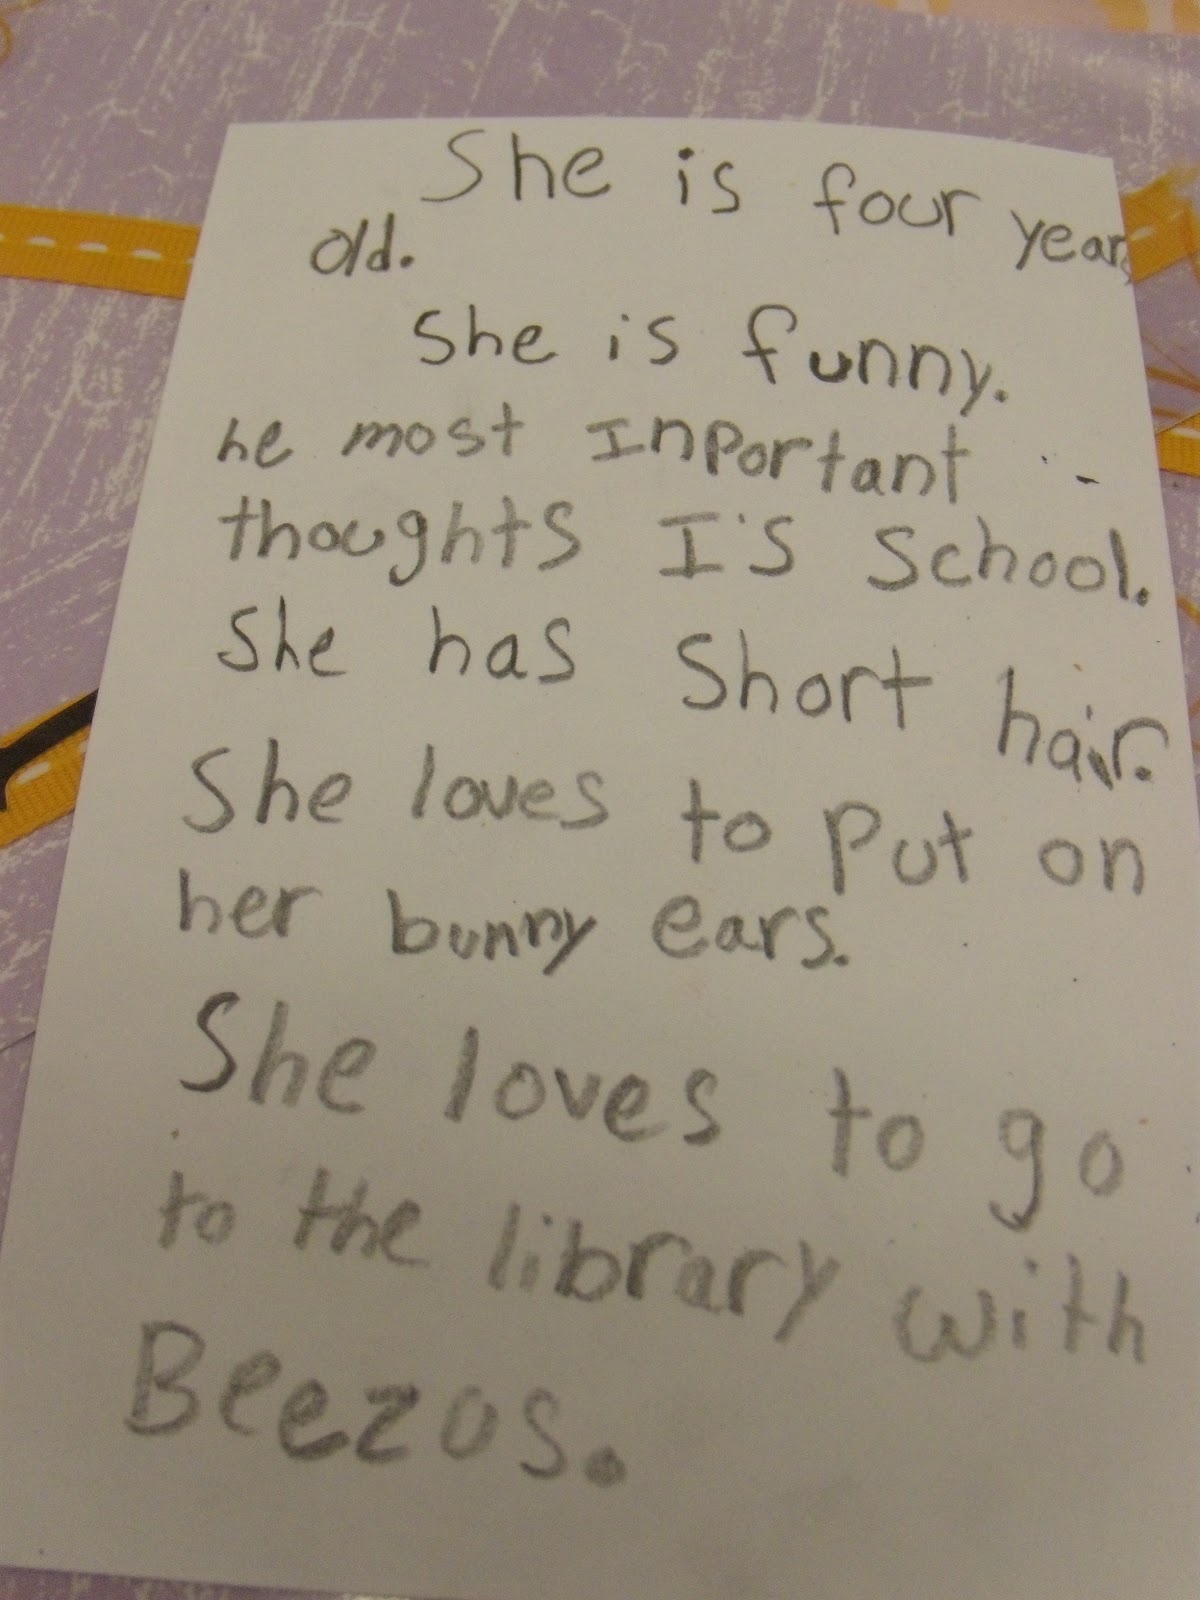 She is four years
old.
She is funny.
he most Inportant
thoughts Is School.
She has Short hair.
She loves to Put on
her bunny ears.
She loves to go
to the library with
Beezus.